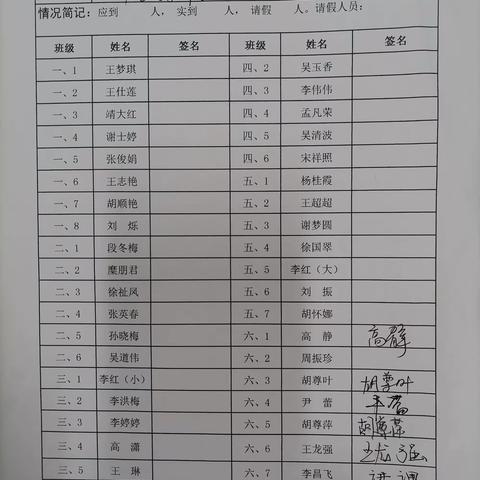 情况简记：应到 人，实到 人，请假 人。请假人员：
班级 姓名 签名 班级 姓名 签名
一、1 王梦琪 四、2 吴玉香
一、2 王仕莲 四、3 李伟伟
一、3 靖大红 四、4 孟凡荣
一、4 谢士婷 四、5 吴清波
一、5 张俊娟 四、6 宋祥照
一、6 王志艳 五、1 杨桂霞
一、7 胡顺艳 五、2 王超超
一、8 刘 烁 五、3 谢梦圆
二、1 段冬梅 五、4 徐国翠
二、2 糜朋君 五、5 李红（大）
二、3 徐祉凤 五、6 刘 振
二、4 张英春 五、7 胡怀娜
二、5 孙晓梅 六、1 高 静 高静
二、6 吴道伟 六、2 周振珍
三、1 李红（小） 六、3 胡尊叶 胡尊叶
三、2 李洪梅 六、4 尹 蕾
三、3 李婷婷 六、5 胡尊萍 胡尊萍
三、4 高 潇 六、6 王龙强 王龙强
三、5 王 琳 六、7 李昌飞